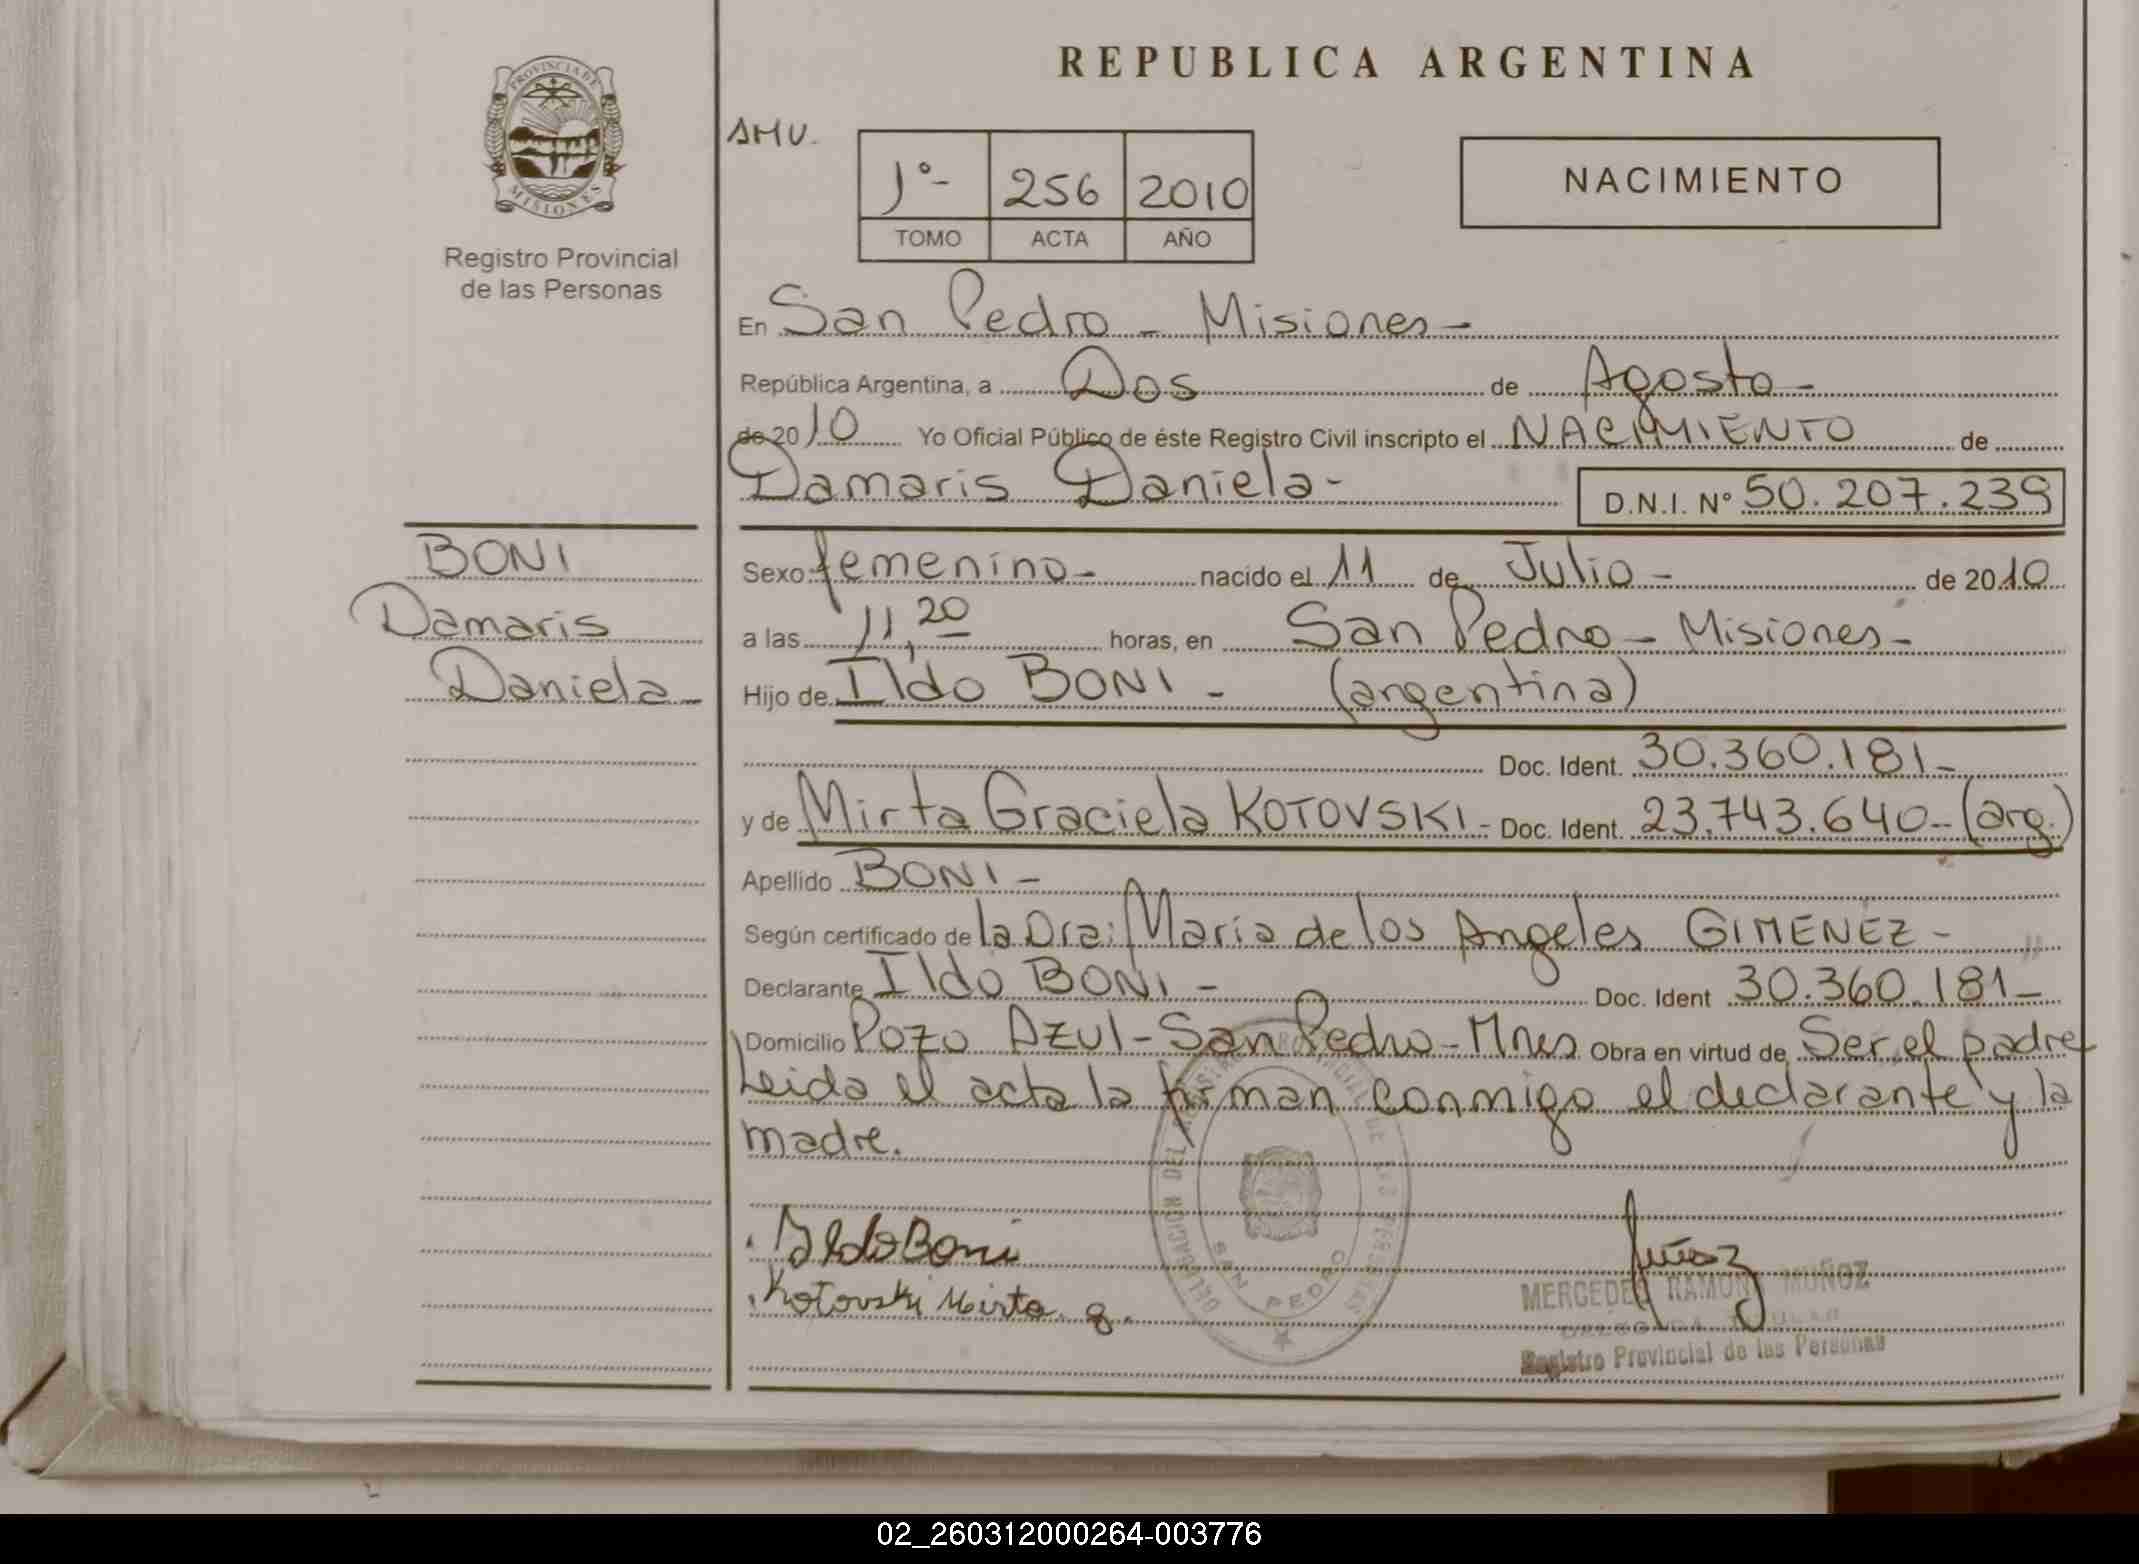 REPUBLICA ARGENTINA
PROVINCIA DE
MISIONES
Registro Provincial
de las Personas
AMU.
1º- 256 2010
TOMO ACTA AÑO
NACIMIENTO
En San Pedro - Misiones -
República Argentina, a Dos de Agosto -
de 2010 Yo Oficial Público de éste Registro Civil inscripto el NACIMIENTO de
Damaris Daniela - D.N.I. Nº 50.207.239
BONI
Damaris
Daniela
Sexo femenino - nacido el 11 de Julio - de 2010
a las 11,20 horas, en San Pedro - Misiones -
Hijo de Ildo BONI - (argentina)
Doc. Ident. 30.360.181 -
y de Mirta Graciela KOTOVSKI - Doc. Ident. 23.743.640 - (arg.)
Apellido BONI -
Según certificado de la Dra: Maria de los Angeles GIMENEZ -
Declarante Ildo BONI - Doc. Ident 30.360.181 -
Domicilio Pozo Azul - San Pedro - Mnes Obra en virtud de Ser el padre
Leida el acta la firman conmigo el declarante y la
madre.
Ildo Boni
Kotovski Mirta g.
DELEGACION DEL REGISTRO PROVINCIAL DE LAS PERSONAS
SAN PEDRO
Muñoz
MERCEDES RAMONA MUÑOZ
Registro Provincial de las Personas
02_260312000264-003776